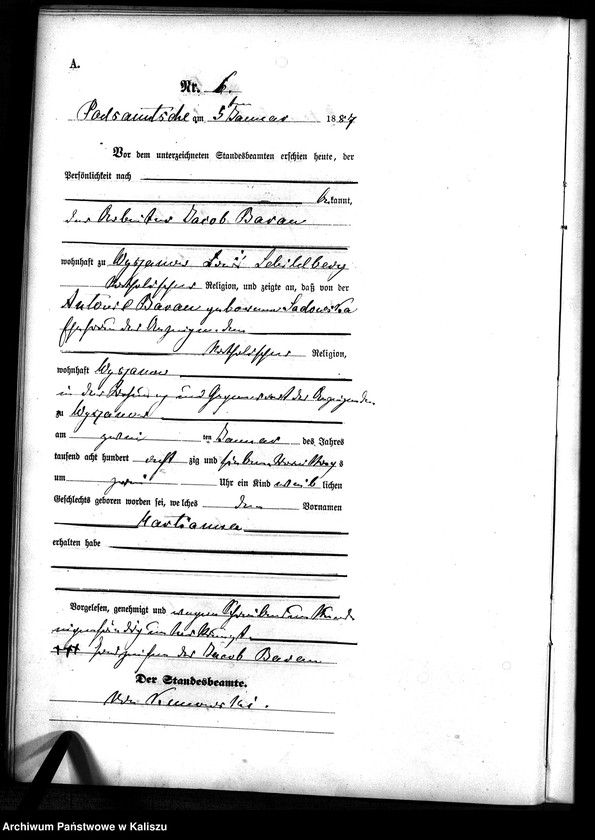 A.
Nr. 6.
Podsamtsche am 5 Januar 1887
Vor dem unterzeichneten Standesbeamten erschien heute, der
Persönlichkeit nach
kannt,
der Arbeiter Jacob Baran
wohnhaft zu Wyszanow Schildberg
katholischer Religion, und zeigte an, daß von der
Antonie Baran geborenen Sadowska
Ehefrau des Anzeigenden
katholischer Religion,
wohnhaft Wyszanow
in der Wohnung und Gegenwart des Anzeigenden
zu Wyszanow
am zwei ten Januar des Jahres
tausend acht hundert acht zig und sieben Vormittags
um zwei Uhr ein Kind weib lichen
Geschlechts geboren worden sei, welches den Vornamen
Marianna
erhalten habe
Vorgelesen, genehmigt und wegen
unterkreuzt
+++ Handzeichen des Jacob Baran
Der Standesbeamte.
Archiwum Państwowe w Kaliszu